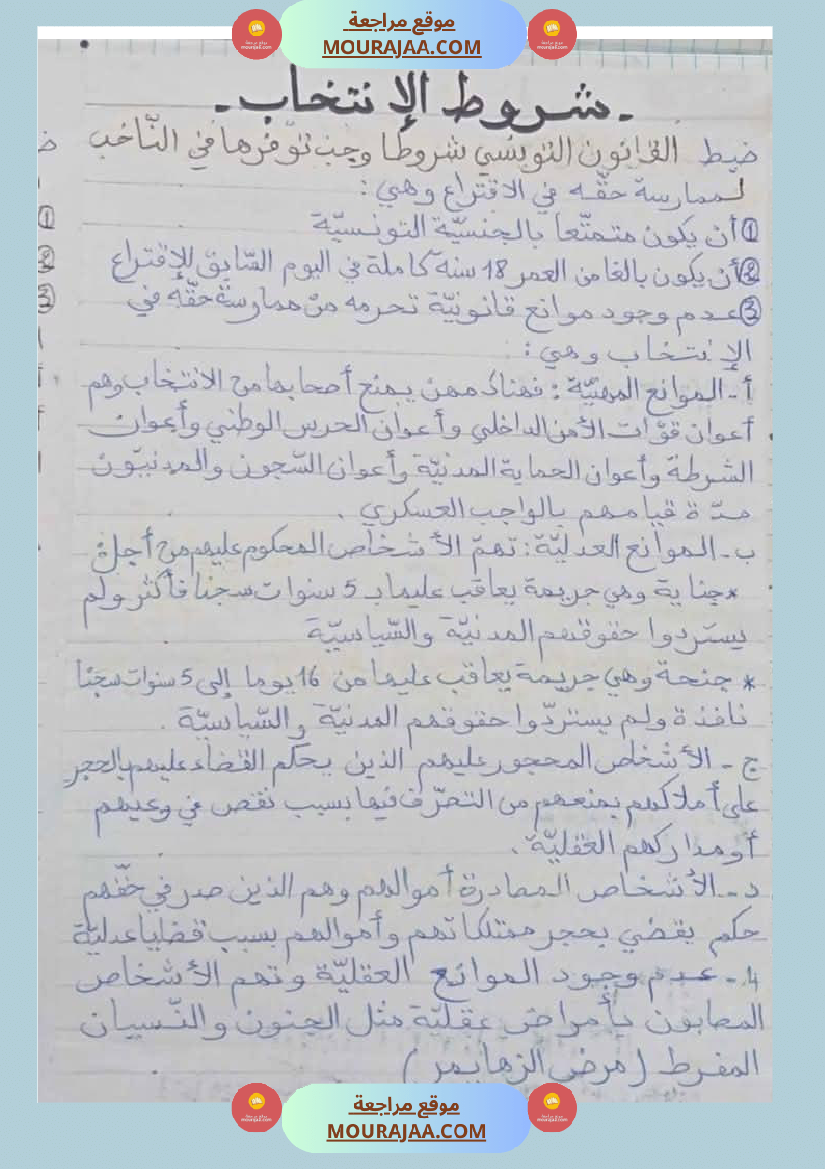 موقع مراجعة
MOURAJAA.COM
ـ شروط الإنتخاب ـ
ضبط القانون التونسي شروطا وجب توفّرها في النّاخب
لممارسة حقّه في الاقتراع وهي :
① أن يكون متمتّعا بالجنسيّة التونسيّة
② أن يكون بالغا من العمر 18 سنة كاملة في اليوم السّابق للإقتراع
③ عدم وجود موانع قانونيّة تحرمه من ممارسة حقّه في
الإنتخاب وهي :
أ - الموانع المهنيّة : فهناك مهن يمنع أصحابها من الانتخاب وهم
أعوان قوّات الأمن الداخلي وأعوان الحرس الوطني وأعوان
الشرطة وأعوان الحماية المدنيّة وأعوان السّجون والمدنيّون
مدّة قيامهم بالواجب العسكري .
ب - الموانع العدليّة : تهمّ الأشخاص المحكوم عليهم من أجل
* جناية وهي جريمة يعاقب عليها بـ 5 سنوات سجنا فأكثر ولم
يستردوا حقوقهم المدنيّة والسّياسيّة
* جنحة وهي جريمة يعاقب عليها من 16 يوما إلى 5 سنوات سجنا
نافذة ولم يستردّوا حقوقهم المدنيّة والسّياسيّة .
ج - الأشخاص المحجور عليهم الذين يحكم القضاء عليهم بالحجر
على أملاكهم بمنعهم من التصرّف فيها بسبب نقص في وعيهم
أو مداركهم العقليّة .
د - الأشخاص المصادرة أموالهم وهم الذين صدر في حقّهم
حكم يقضي بحجر ممتلكاتهم وأموالهم بسبب قضايا عدليّة
4 - عدم وجود الموانع العقليّة وتهم الأشخاص
المصابون بأمراض عقليّة مثل الجنون والنّسيان
المفرط (مرض الزهايمر)
موقع مراجعة
MOURAJAA.COM